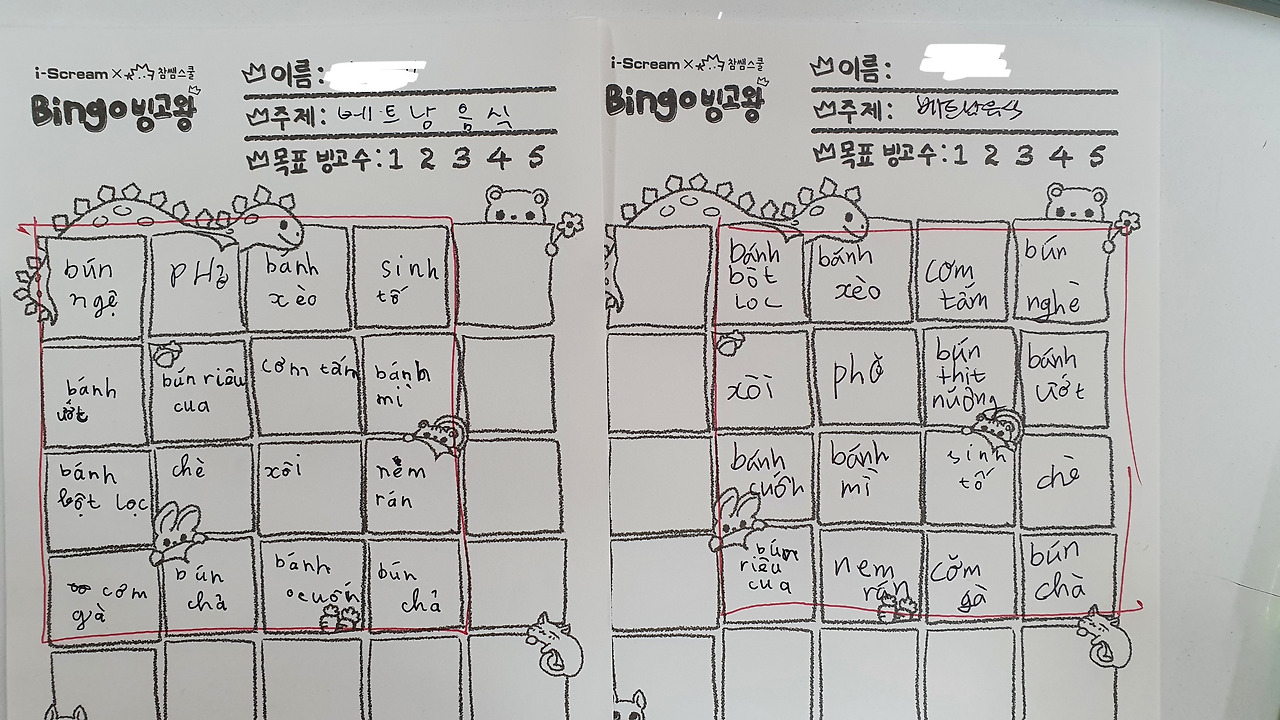 i-Scream × 참쌤스쿨
Bingo 빙고왕
이름:
주제: 베트남 음식
목표 빙고수: 1 2 3 4 5
bún
ngệ
pHở
bánh
xèo
sinh
tố
bánh
ướt
bún riêu
cua
cơm tấm
bánh
mì
bánh
bột lọc
chè
xôi
nem
rán
cơm
gà
bún
chả
bánh
cuốn
bún
chả
i-Scream × 참쌤스쿨
Bingo 빙고왕
이름:
주제: 베트남음식
목표 빙고수: 1 2 3 4 5
bánh
bột
lọc
bánh
xèo
cơm
tấm
bún
nghè
xôi
phở
bún
thịt
nướng
bánh
ướt
bánh
cuốn
bánh
mì
sinh
tố
chè
bún
riêu
cua
nem
rán
cơm
gà
bún
chà